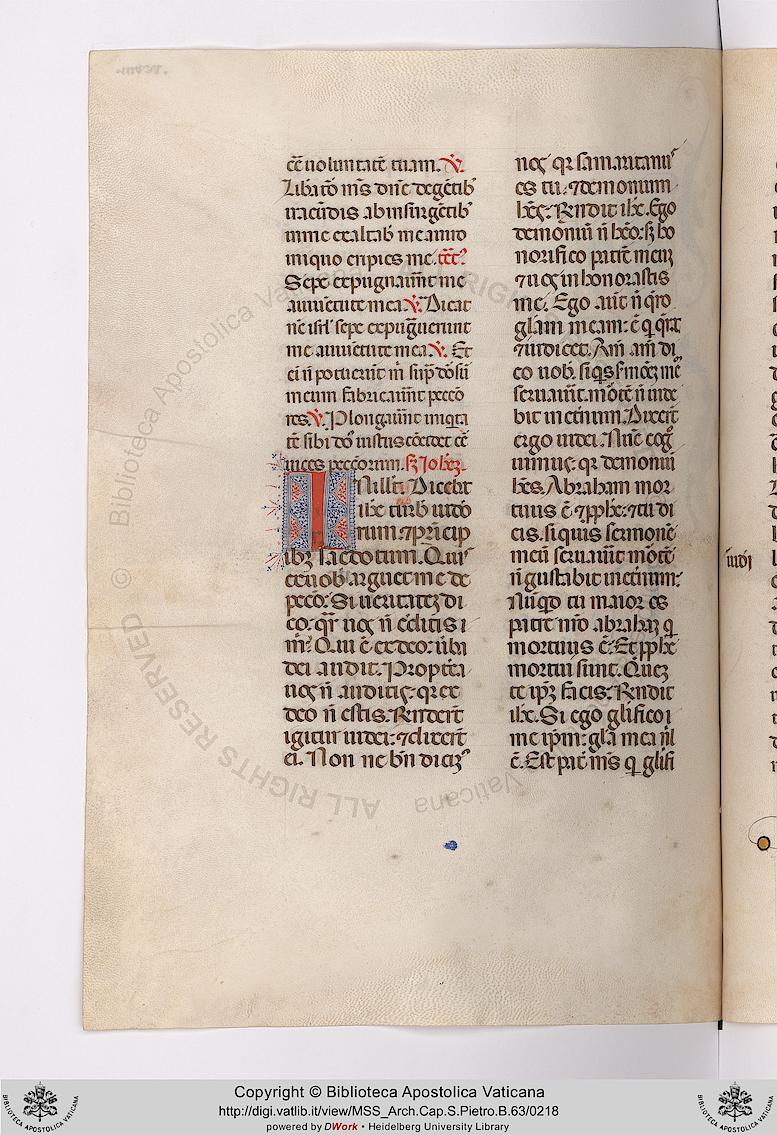 cē uoluntatē tuam. V.
Libatō m̄s dn̄e de gētib᷒
iracūdis ab insurgētib᷒
in me exaltab᷒ me a uiro
iniquo eripies me. tct᷒
Sepe expugnauūt me
a iuuētute mea. V. Dicat
nc̄ isrl̄ sepe expugnauerunt
me a iuuētute mea. V. Et
ei n̄ potuerūt m̄ sup̄ dōsū
meum fabricauūt peccō
res. V. Plongauūt iniq̄ta
tē sibi dō᷒ iustus cōcidet cē
uices peccōrum. Sz Iohez.
In illo t̄. Dicebat
ihc̄ turb᷒ iudeo
rum ⁊ pn̄cip
ibꝫ sacdotum. Quis
ex uob᷒ arguet me de
pecc̄o. Si ueritatez di
co: q̄r̄ uos n̄ cditis i
m̄. Qui ē ex deo: ūba
dei audit. Propt̄ea
uos n̄ auditis: qr ex
deo n̄ estis. Rn̄dert̄
igitur iudei: ⁊ dixert̄
ei. Non ne bn̄ dicim᷒
nos qr samaritanus
es tu: ⁊ demonium
hēs. Rn̄dit ihc̄. Ego
demoniū n̄ hēo: sꝫ ho
norifico patrē meuz
⁊ uos inhonorastis
me. Ego aūt n̄ q̄ro
glām meam: ē q̄ q̄rat
⁊ iudicet. Am̄ am̄ di
co uob᷒. siq̄s smōez mē
seruauīt. mōtē n̄ uide
bit in et̄num. Dixert̄
ergo iudei. Nūc cog
uimus: qr demoniū
hēs. Abraham mor
tuus ē ⁊ pphē: ⁊ tu di
cis. si quis sermonē
meū seruauīt mōtē
n̄ gustabit in et̄num:
Nūqd tu maior es
patre nr̄o abrahaz q̄
mortuus ē. Et pphē
mortui sunt. Quez
te ip̄z facis. Rn̄dit
ihc̄. Si ego glifico
me ip̄m: glā mea n̄l
ē. Est pat̄ m̄s q̄ glifi
Copyright © Biblioteca Apostolica Vaticana
http://digi.vatlib.it/view/MSS_Arch.Cap.S.Pietro.B.63/0218
powered by DWork • Heidelberg University Library
© Biblioteca Apostolica Vaticana
ALL RIGHTS RESERVED